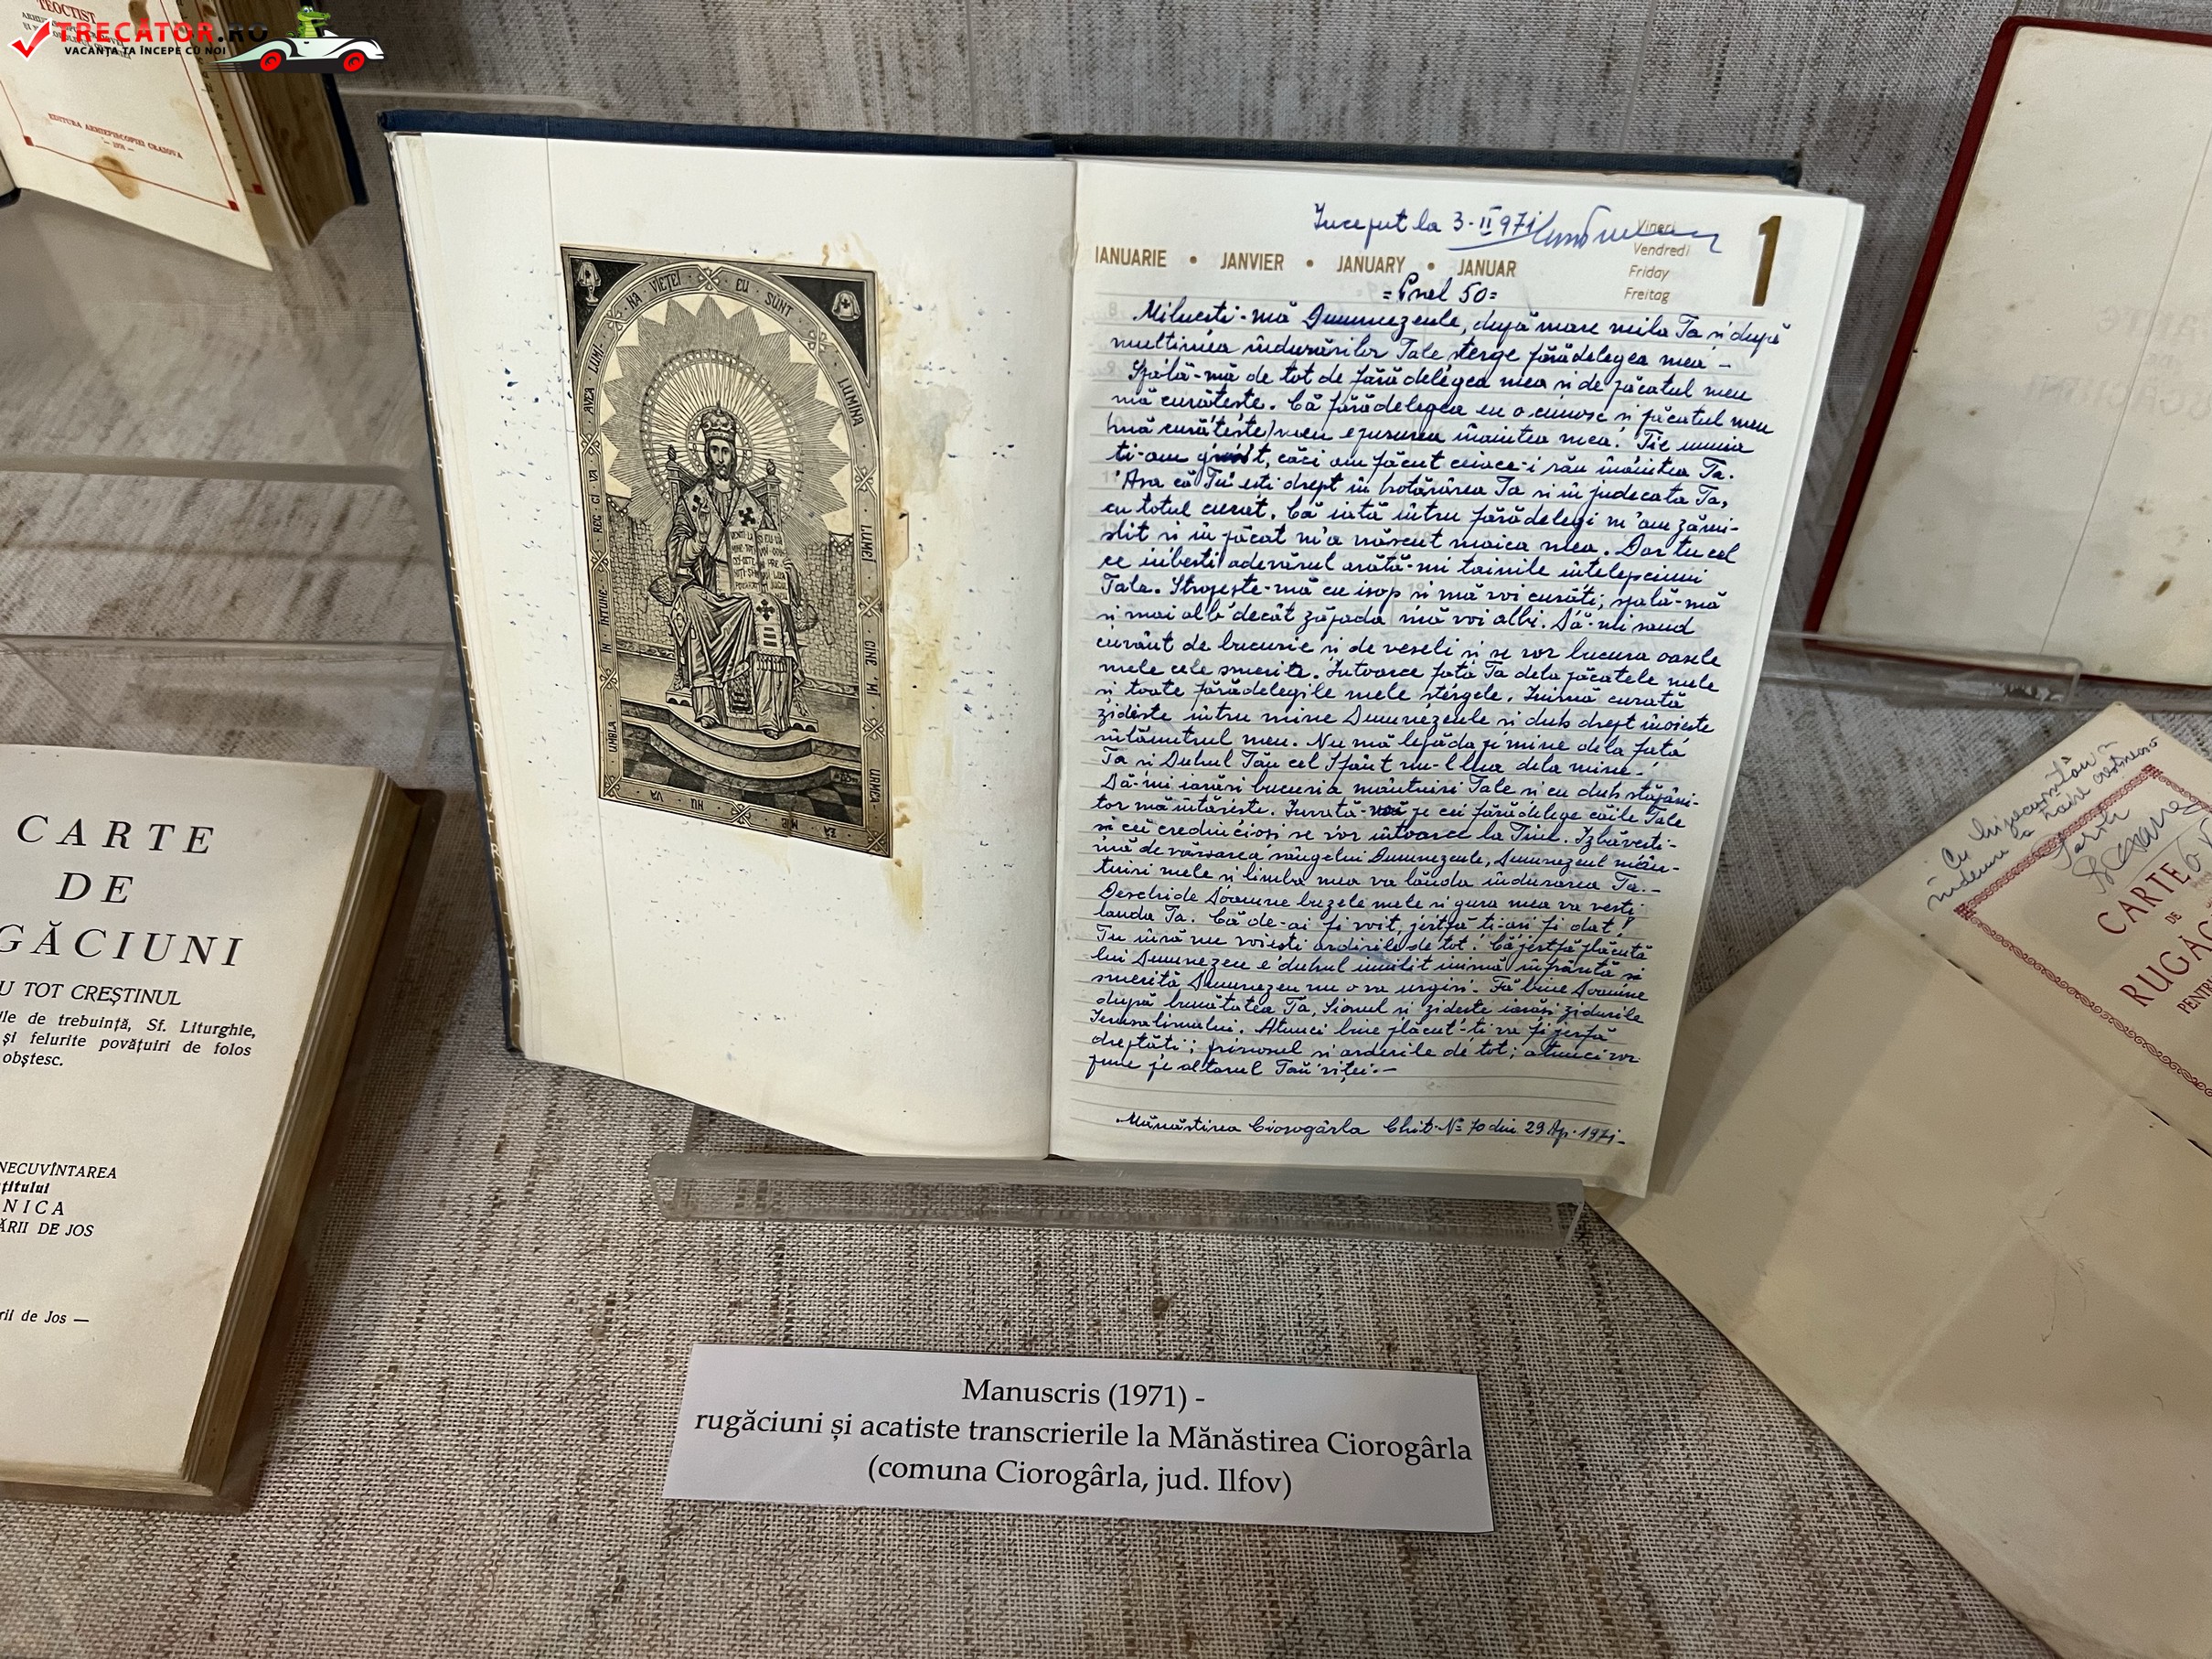 TEOCTIST
EDITURA ARHIEPISCOPIEI CRAIOVA
TRECĂTOR.RO
VACANȚA TA ÎNCEPE CU NOI
NA · VIEȚEI · EU · SÛNT
LUMINA
LUMEI
CINE 'MI
URMEA-
ZĂ
ME
NU
VA
UMBLA
IN INTUNE-
REC CI VA
AVEA LUMI-
Început la 3-II 971
Vineri
Vendredi
Friday
Freitag
1
IANUARIE • JANVIER • JANUARY • JANUAR
= Psal 50=
Miluesti-mă Dumnezeule, după mare mila Ta si după
multimea îndurărilor Tale sterge fărădelegea mea -
Spală-mă de tot de fărădelegea mea si de păcatul meu
mă curăteste. Că fărădelegea eu o cunosc si păcatul meu
(mă curăteste) meu e pururea înaintea mea. Tie unuia
ti-am gresit, căci am făcut ceiace-i rău înaintea Ta.
Asa că Tu esti drept în hotărârea Ta si în judecata Ta,
cu totul curat. Că iată întru fărădelegi m'am zămi-
slit si în păcat m'a născut maica mea. Dar tu cel
ce iubesti adevărul arată-mi tainile întelepciunii
Tale. Stropeste-mă cu isop si mă voi curăti; spală-mă
si mai alb decât zăpada mă voi albi. Dă-mi saud
cuvânt de bucurie si de veseli si se vor bucura oasele
mele cele smerite. Întoarce fata Ta dela păcatele mele
si toate fărădelegile mele stergele. Inimă curată
zideste întru mine Dumnezeule si duh drept înoieste
înlăuntrul meu. Nu mă lepăda pe mine dela fata
Ta si Duhul Tău cel Sfânt nu-l lua dela mine.
Dă-mi iarăsi bucuria mântuirii Tale si cu duh stăpâni-
tor mă întăreste. Învăta-voi pe cei fărădelege căile Tale
si cei credinciosi se vor întoarce la Tine. Izbăvesti-
mă de vărsarea sângelui Dumnezeule, Dumnezeul mân-
tuirii mele si limba mea va lăuda îndurarea Ta.-
Deschide Doamne buzele mele si gura mea va vesti
lauda Ta. Că de-ai fi voit, jertfă ti-asi fi dat!
Tu însă nu voiesti arderile de tot. Că jertfă plăcută
lui Dumnezeu e duhul umilit inimă înfrântă si
smerită Dumnezeu nu o va urgisi. Fă bine Doamne
după bunătatea Ta, Sionul si zideste iarăsi zidurile
Ierusalimului. Atunci bine plăcut-ti va fi jertfă
dreptătii; prinosul si arderile de tot; atunci vor
pune pe altarul Tău vitei.-
Mănăstirea Ciorogârla Chit. No 70 din 29 Ap. 1971-
CARTE
DE
GĂCIUNI
U TOT CREȘTINUL
ile de trebuință, Sf. Liturghie,
și felurite povățuiri de folos
obștesc.
NECUVÎNTAREA
țitului
NICA
ĂRII DE JOS
rii de Jos —
Cu
îndemn la
CARTE
DE
RUGĂC
PENTRU
Manuscris (1971) -
rugăciuni și acatiste transcrierile la Mănăstirea Ciorogârla
(comuna Ciorogârla, jud. Ilfov)